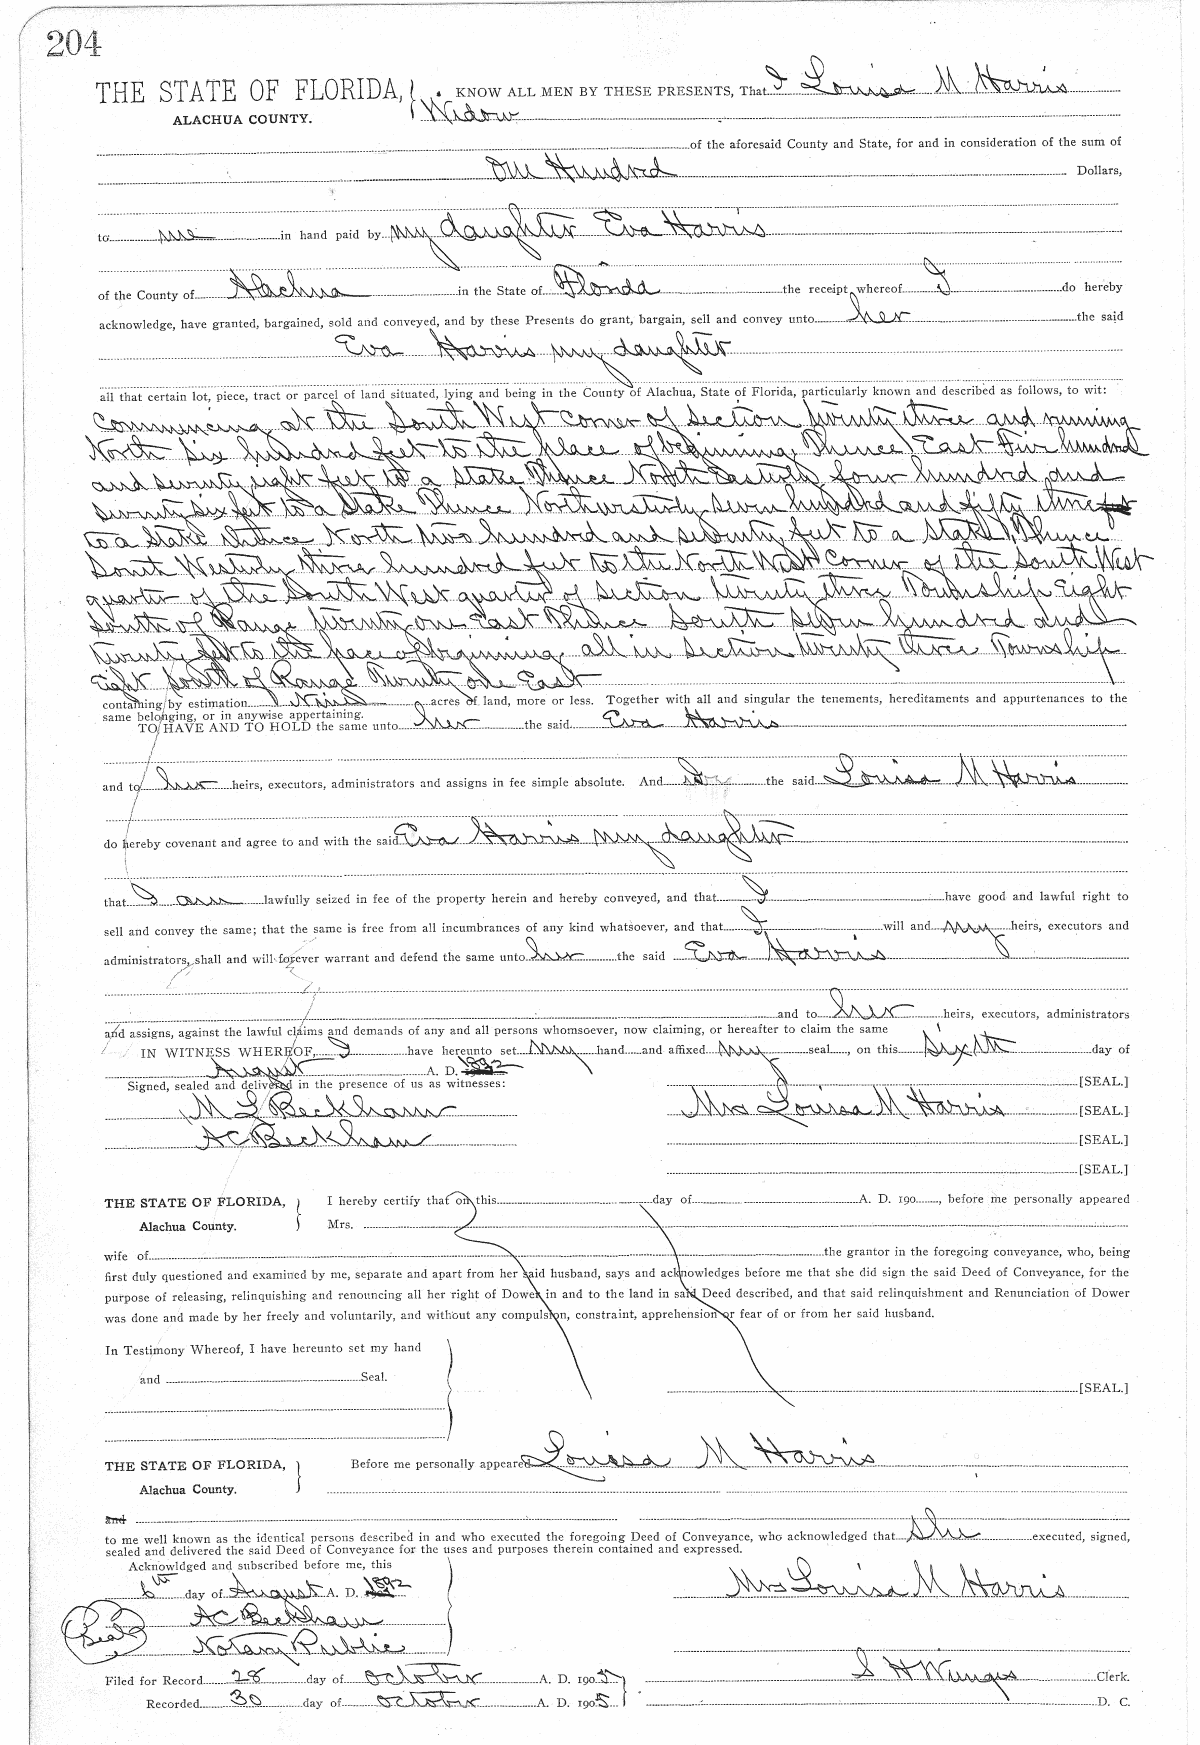 204
THE STATE OF FLORIDA, KNOW ALL MEN BY THESE PRESENTS, That I Louisa M Harris
ALACHUA COUNTY. Widow
of the aforesaid County and State, for and in consideration of the sum of
One Hundred Dollars,
to me in hand paid by my daughter Eva Harris
of the County of Alachua in the State of Florida the receipt whereof I do hereby
acknowledge, have granted, bargained, sold and conveyed, and by these Presents do grant, bargain, sell and convey unto her the said
Eva Harris my daughter
all that certain lot, piece, tract or parcel of land situated, lying and being in the County of Alachua, State of Florida, particularly known and described as follows, to wit:
Commencing at the South West corner of Section twenty three and running
North Six hundred feet to the place of beginning, Thence East Five hundred
and seventy eight feet to a stake Thence North Easterly four hundred and
seventy six feet to a Stake Thence Northwesterly seven hundred and fifty three feet
to a Stake thence North two hundred and seventy feet to a stake, Thence
South Westerly three hundred feet to the North West corner of the South West
quarter of the South West quarter of Section twenty three Township Eight
South of Range twenty one East Thence South seven hundred and
twenty feet to the place of beginning, all in Section twenty three Township
Eight South of Range Twenty one East
containing by estimation Nine acres of land, more or less. Together with all and singular the tenements, hereditaments and appurtenances to the
same belonging, or in anywise appertaining.
TO HAVE AND TO HOLD the same unto her the said Eva Harris
and to her heirs, executors, administrators and assigns in fee simple absolute. And the said Louisa M Harris
do hereby covenant and agree to and with the said Eva Harris my daughter
that I am lawfully seized in fee of the property herein and hereby conveyed, and that I have good and lawful right to
sell and convey the same; that the same is free from all incumbrances of any kind whatsoever, and that I will and my heirs, executors and
administrators, shall and will forever warrant and defend the same unto her the said Eva Harris
and to her heirs, executors, administrators
and assigns, against the lawful claims and demands of any and all persons whomsoever, now claiming, or hereafter to claim the same
IN WITNESS WHEREOF, I have hereunto set my hand and affixed my seal, on this sixth day of
August A. D. 1892
Signed, sealed and delivered in the presence of us as witnesses: [SEAL.]
M L Beckham Mrs Louisa M Harris [SEAL.]
A C Beckham [SEAL.]
[SEAL.]
THE STATE OF FLORIDA, I hereby certify that on this day of A. D. 190, before me personally appeared
Alachua County. Mrs.
wife of the grantor in the foregoing conveyance, who, being
first duly questioned and examined by me, separate and apart from her said husband, says and acknowledges before me that she did sign the said Deed of Conveyance, for the
purpose of releasing, relinquishing and renouncing all her right of Dower in and to the land in said Deed described, and that said relinquishment and Renunciation of Dower
was done and made by her freely and voluntarily, and without any compulsion, constraint, apprehension or fear of or from her said husband.
In Testimony Whereof, I have hereunto set my hand
and Seal.
[SEAL.]
THE STATE OF FLORIDA, Before me personally appeared Louisa M Harris
Alachua County.
and
to me well known as the identical persons described in and who executed the foregoing Deed of Conveyance, who acknowledged that she executed, signed,
sealed and delivered the said Deed of Conveyance for the uses and purposes therein contained and expressed.
Acknowldged and subscribed before me, this
6th day of August A. D. 1892 Mrs Louisa M Harris
A C Beckham
Seal Notary Public
Filed for Record 28 day of October A. D. 1905 S H Wienges Clerk.
Recorded 30 day of October A. D. 1905 D. C.